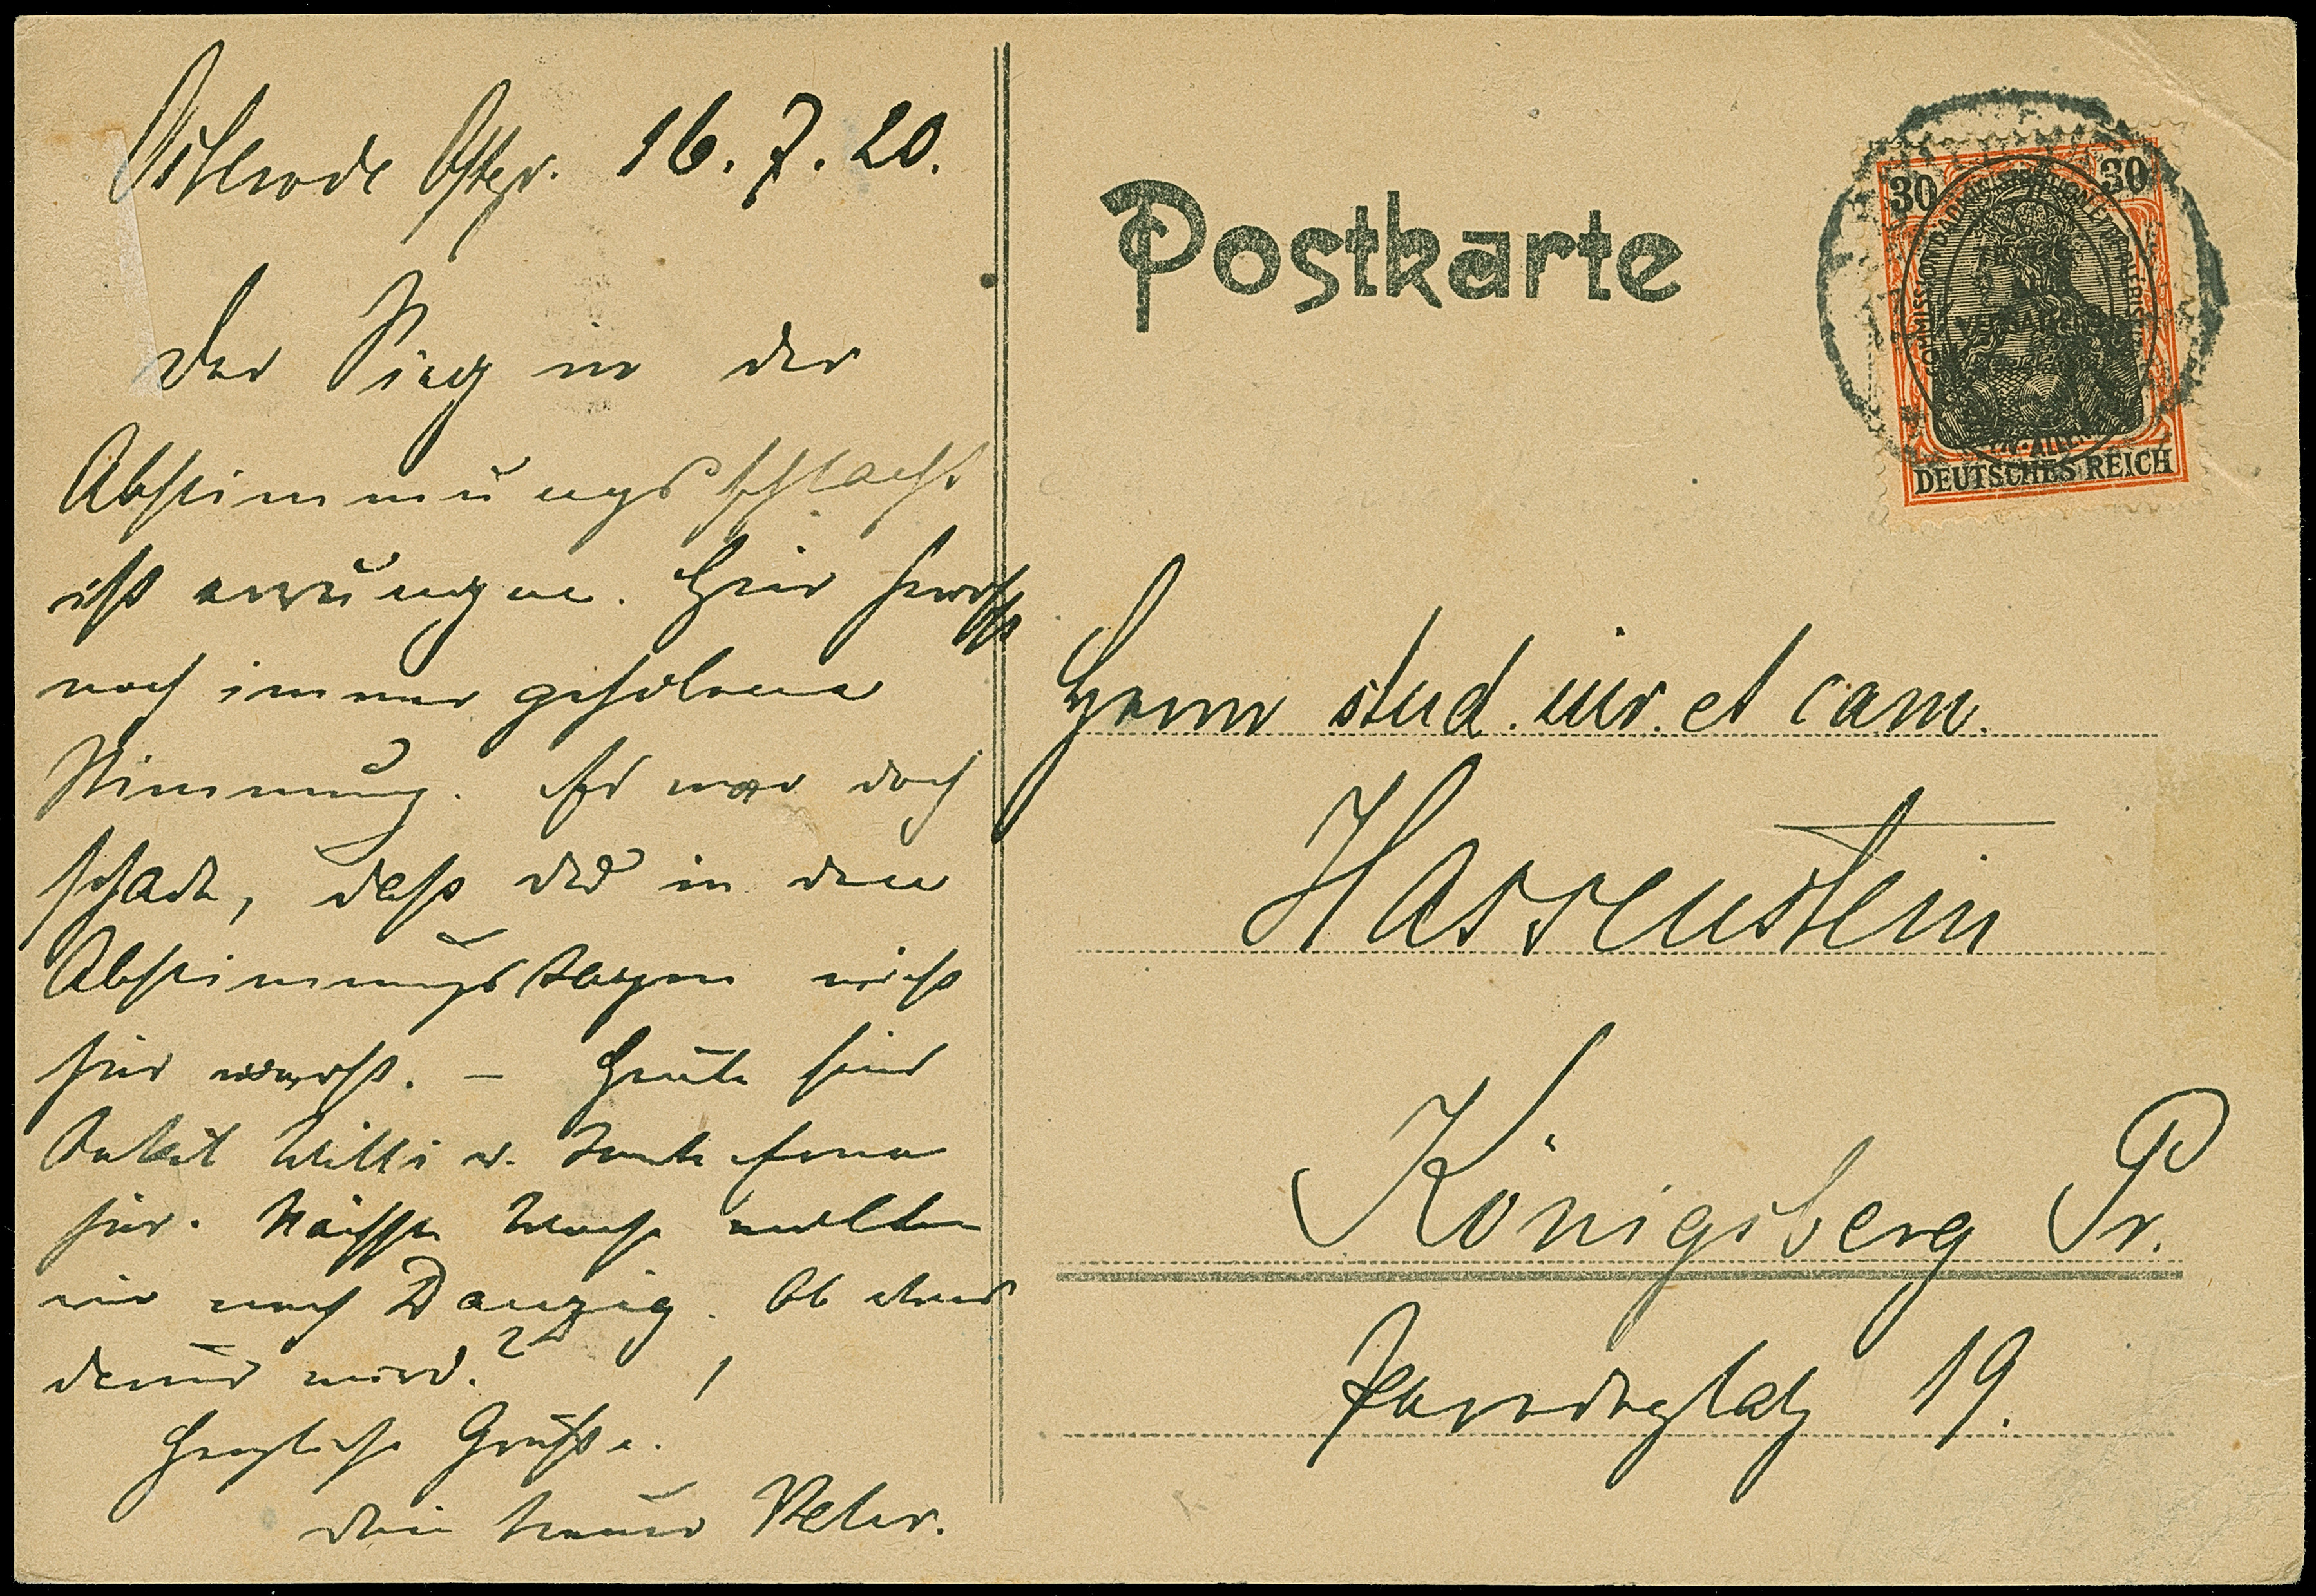 Osterode Ostpr. 16.7.20.
Der Sieg in der
Abstimmungsschlacht
ist errungen. Hier herrscht
noch immer gehobene
Stimmung. Es war doch
schade, daß Du in den
Abstimmungstagen nicht
hier warst. – Heute sind
Onkel Willi u. Tante
hier. Nächste Woche wollten
wir nach Danzig. Ob etwas
daraus wird?
Herzliche Grüße.
Dein treuer Vater.
Postkarte
30 30
COMMISSION D'ADMINISTRATION ET DE PLÉBISCITE
TRAITÉ DE VERSAILLES
DEUTSCHES REICH
Herrn stud. iur. et cam.
Hassenstein
Königsberg Pr.
Paradeplatz 19.